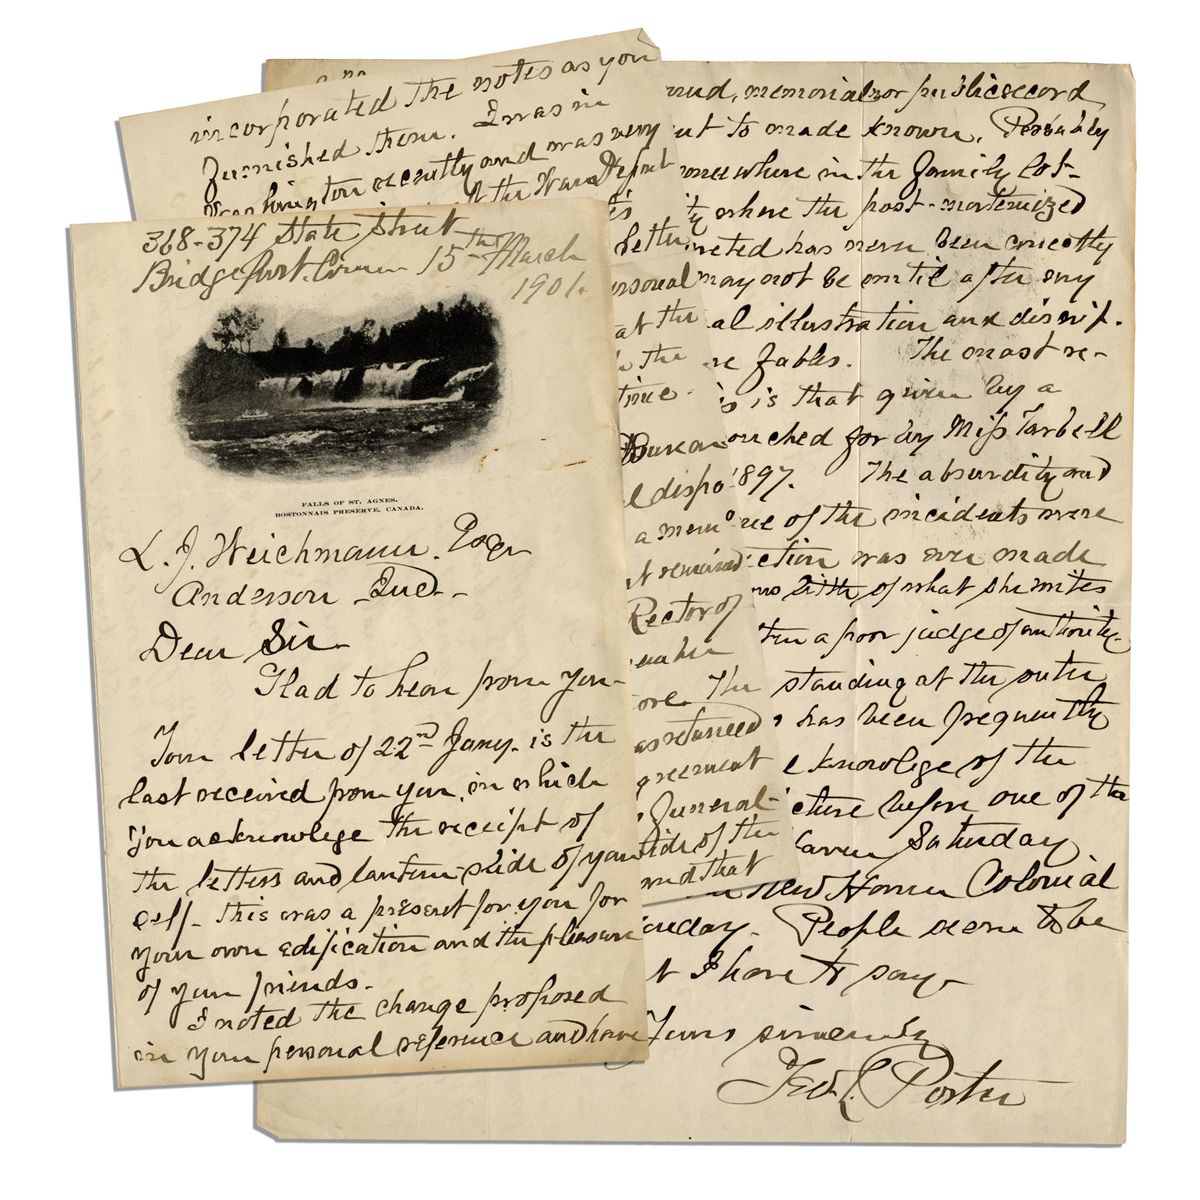 incorporated the notes as you
furnished them. I was in
Washington recently and was very
of the War Depart
368-374 State Street
Bridgeport. Conn 15th March
1901.
FALLS OF ST. AGNES.
BOSTONNAIS PRESERVE, CANADA.
L. J. Weichmann. Esqr
Anderson Ind.
Dear Sir
Glad to hear from you.
Your letter of 22nd Jany. is the
last received from you, in which
you acknowlege the receipt of
the letters and lantern slide of your
self. This was a present for you for
your own edification and the pleasure
of your friends.
I noted the change proposed
in your personal reference and have
letter
ersonal
at the
the
Bureau
l dispo
a mem
Rector of
The
as returned
greement
Funeral
ide of the
and that
, memorial or public record
ut to made known. Possibly
omewhere in the family lot
where the post-mortemized
reted has never been correctly
may not be until after my
al illustration and descrip-
ve fables. The most re-
is that given by a
ouched for by Miss Tarbell
1897. The absurdity and
ue of the incidents were
ction was ever made
so little of what she writes
a poor judge of authority.
standing at the outer
has been frequently
e knowlege of the
cture before one of the
Haven Saturday
New Haven Colonial
unday. People seem to be
t I have to say
Yours sincerely
Geo. L. Porter